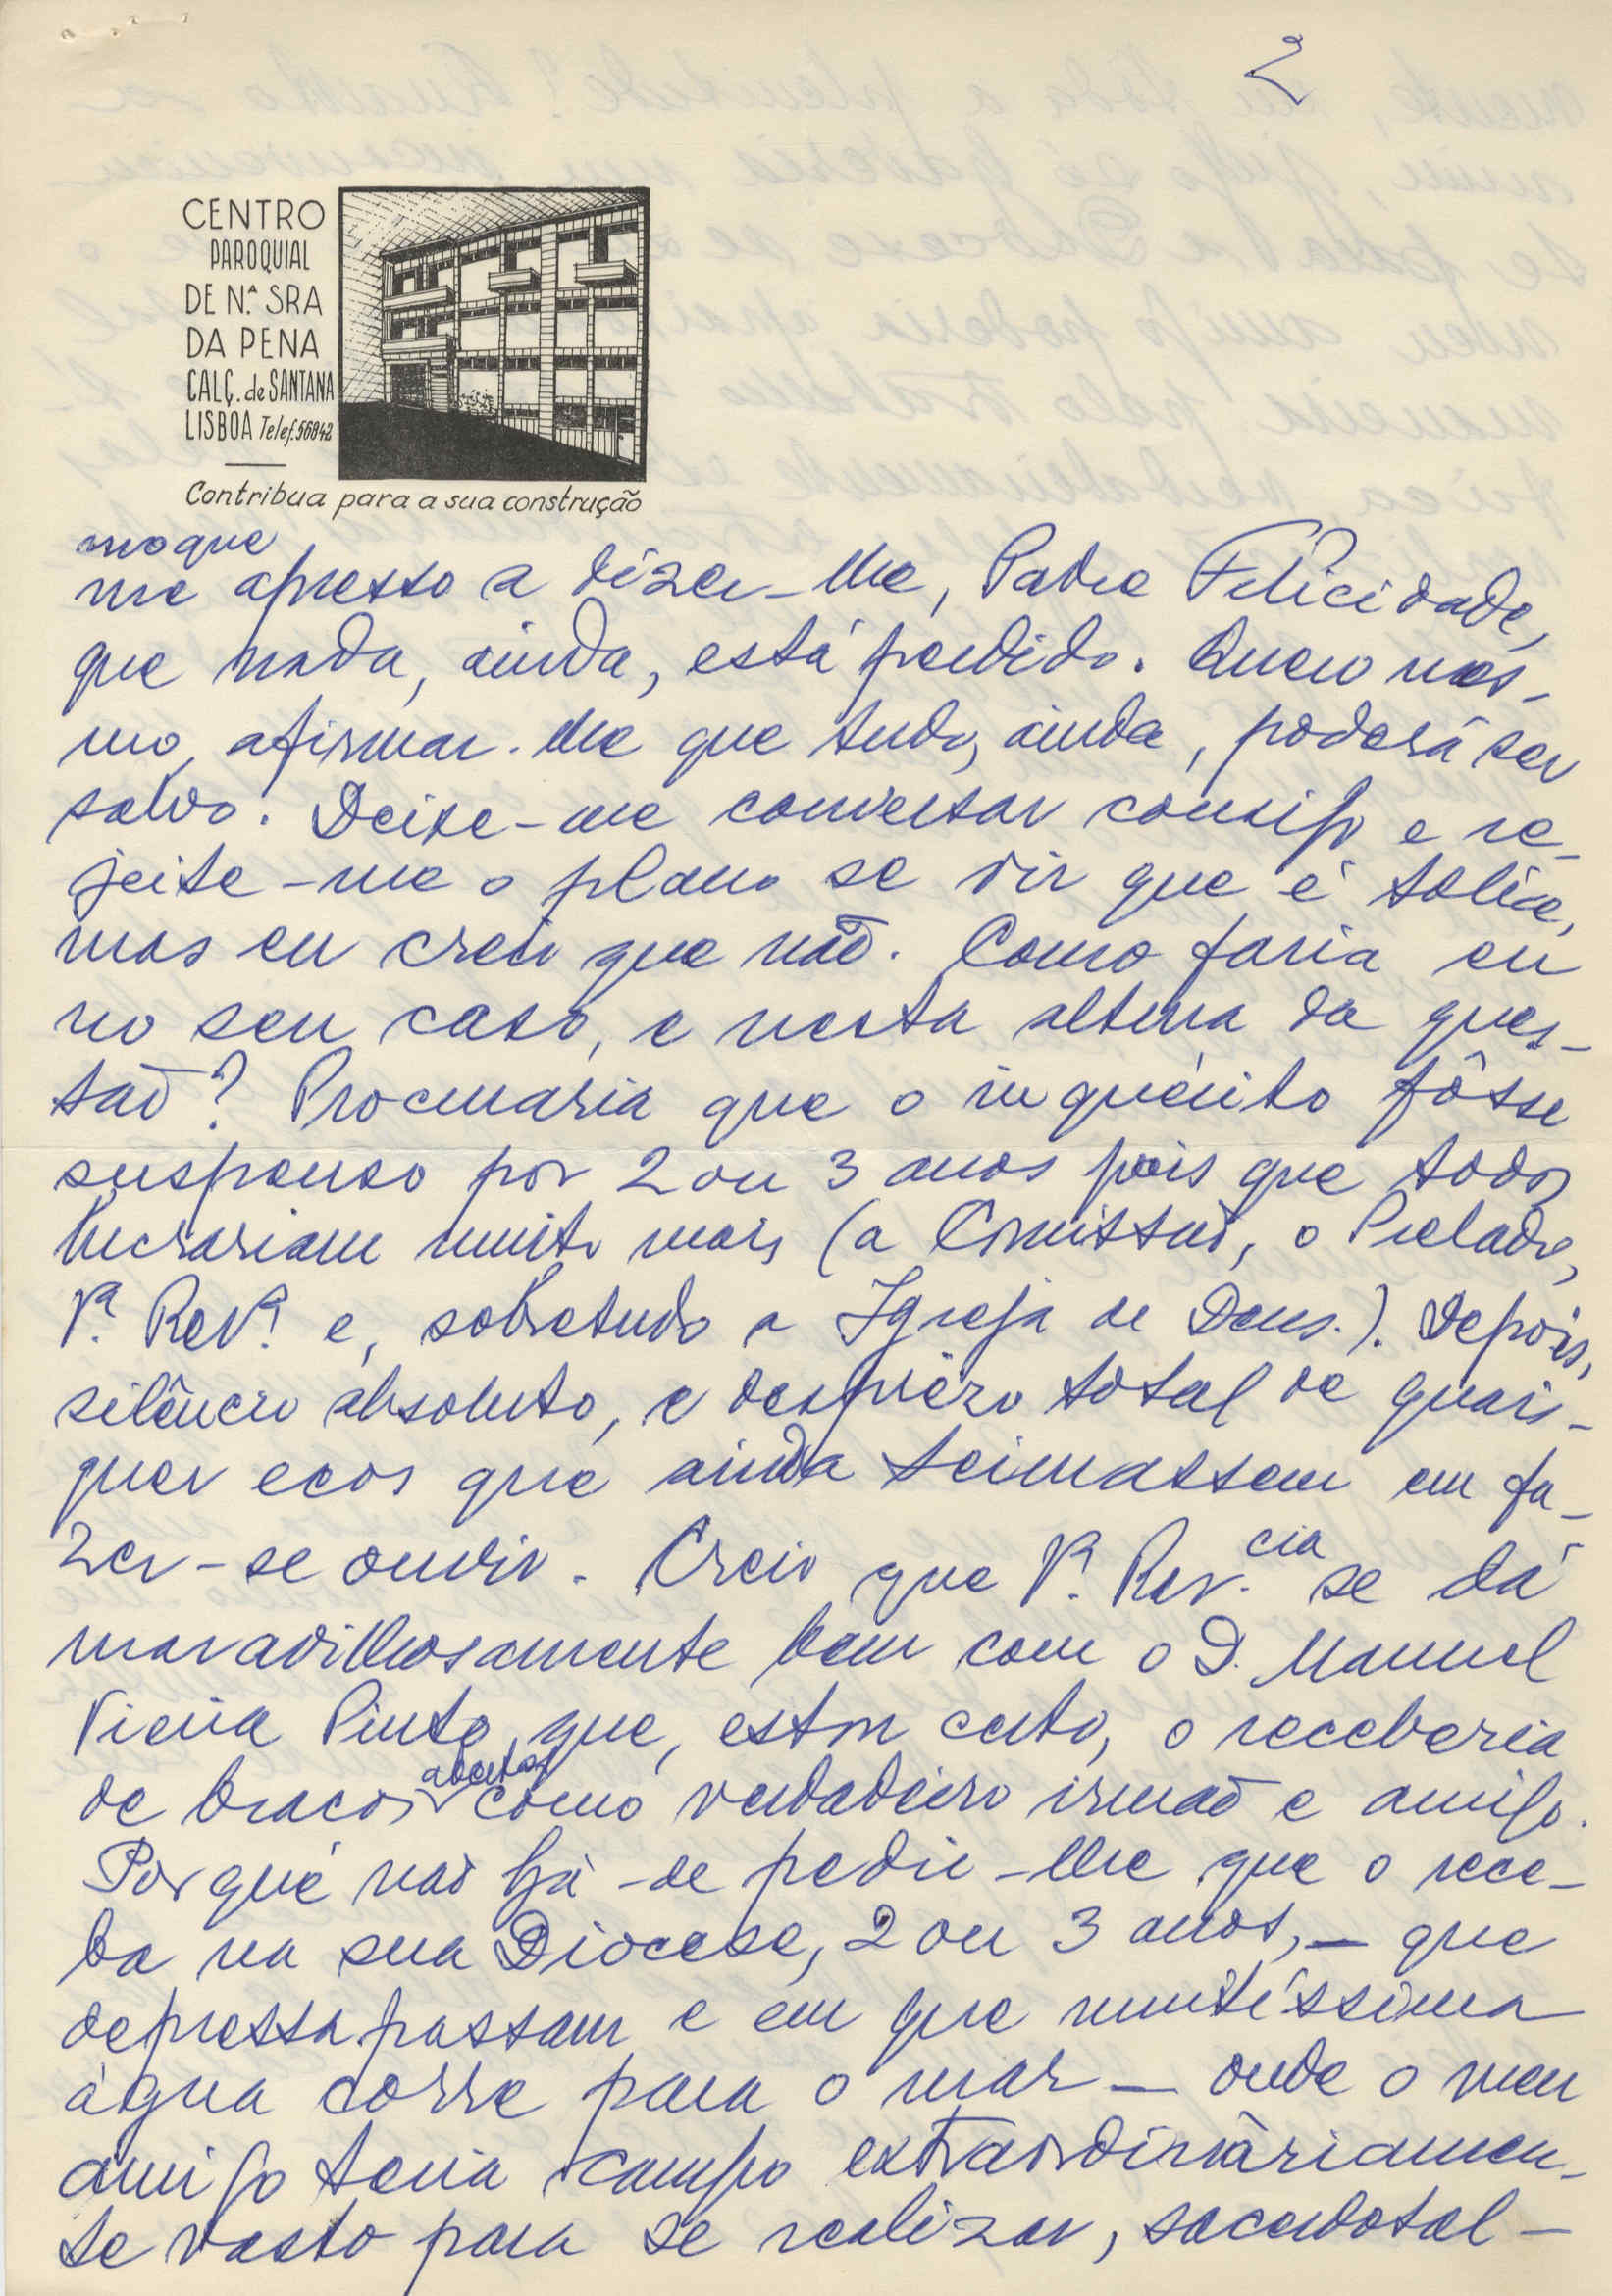 2
CENTRO
PAROQUIAL
DE N.ª SRA
DA PENA
CALÇ. de SANTANA
LISBOA Telef. 56842
Contribua para a sua construção
mo que
me apresso a dizer-lhe, Padre Felicidade,
que nada, ainda, está perdido. Quero mes-
mo, afirmar-lhe que tudo, ainda, poderá ser
salvo. Deixe-me conversar consigo e re-
jeite-me o plano se vir que é tolice,
mas eu creio que não. Como faria eu
no seu caso, e nesta altura da ques-
tão? Procuraria que o inquérito fôsse
suspenso por 2 ou 3 anos pois que todos
lucrariam muito mais (a Comissão, o Prelado,
V.ª Rev.ª e, sobretudo a Igreja de Deus.). Depois,
silêncio absoluto, e desprêzo total de quais-
quer ecos que ainda teimassem em fa-
zer-se ouvir. Creio que V.ª Rev.cia se dá
maravilhosamente bem com o D. Manuel
Vieira Pinto, que, estou certo, o receberia
de braços abertos como verdadeiro irmão e amigo.
Porquê não há-de pedir-lhe que o rece-
ba na sua Diocese, 2 ou 3 anos, — que
depressa passam e em que muitíssima
água corre para o mar — onde o meu
amigo teria campo extraordinàriamen-
te vasto para se realizar, sacerdotal-